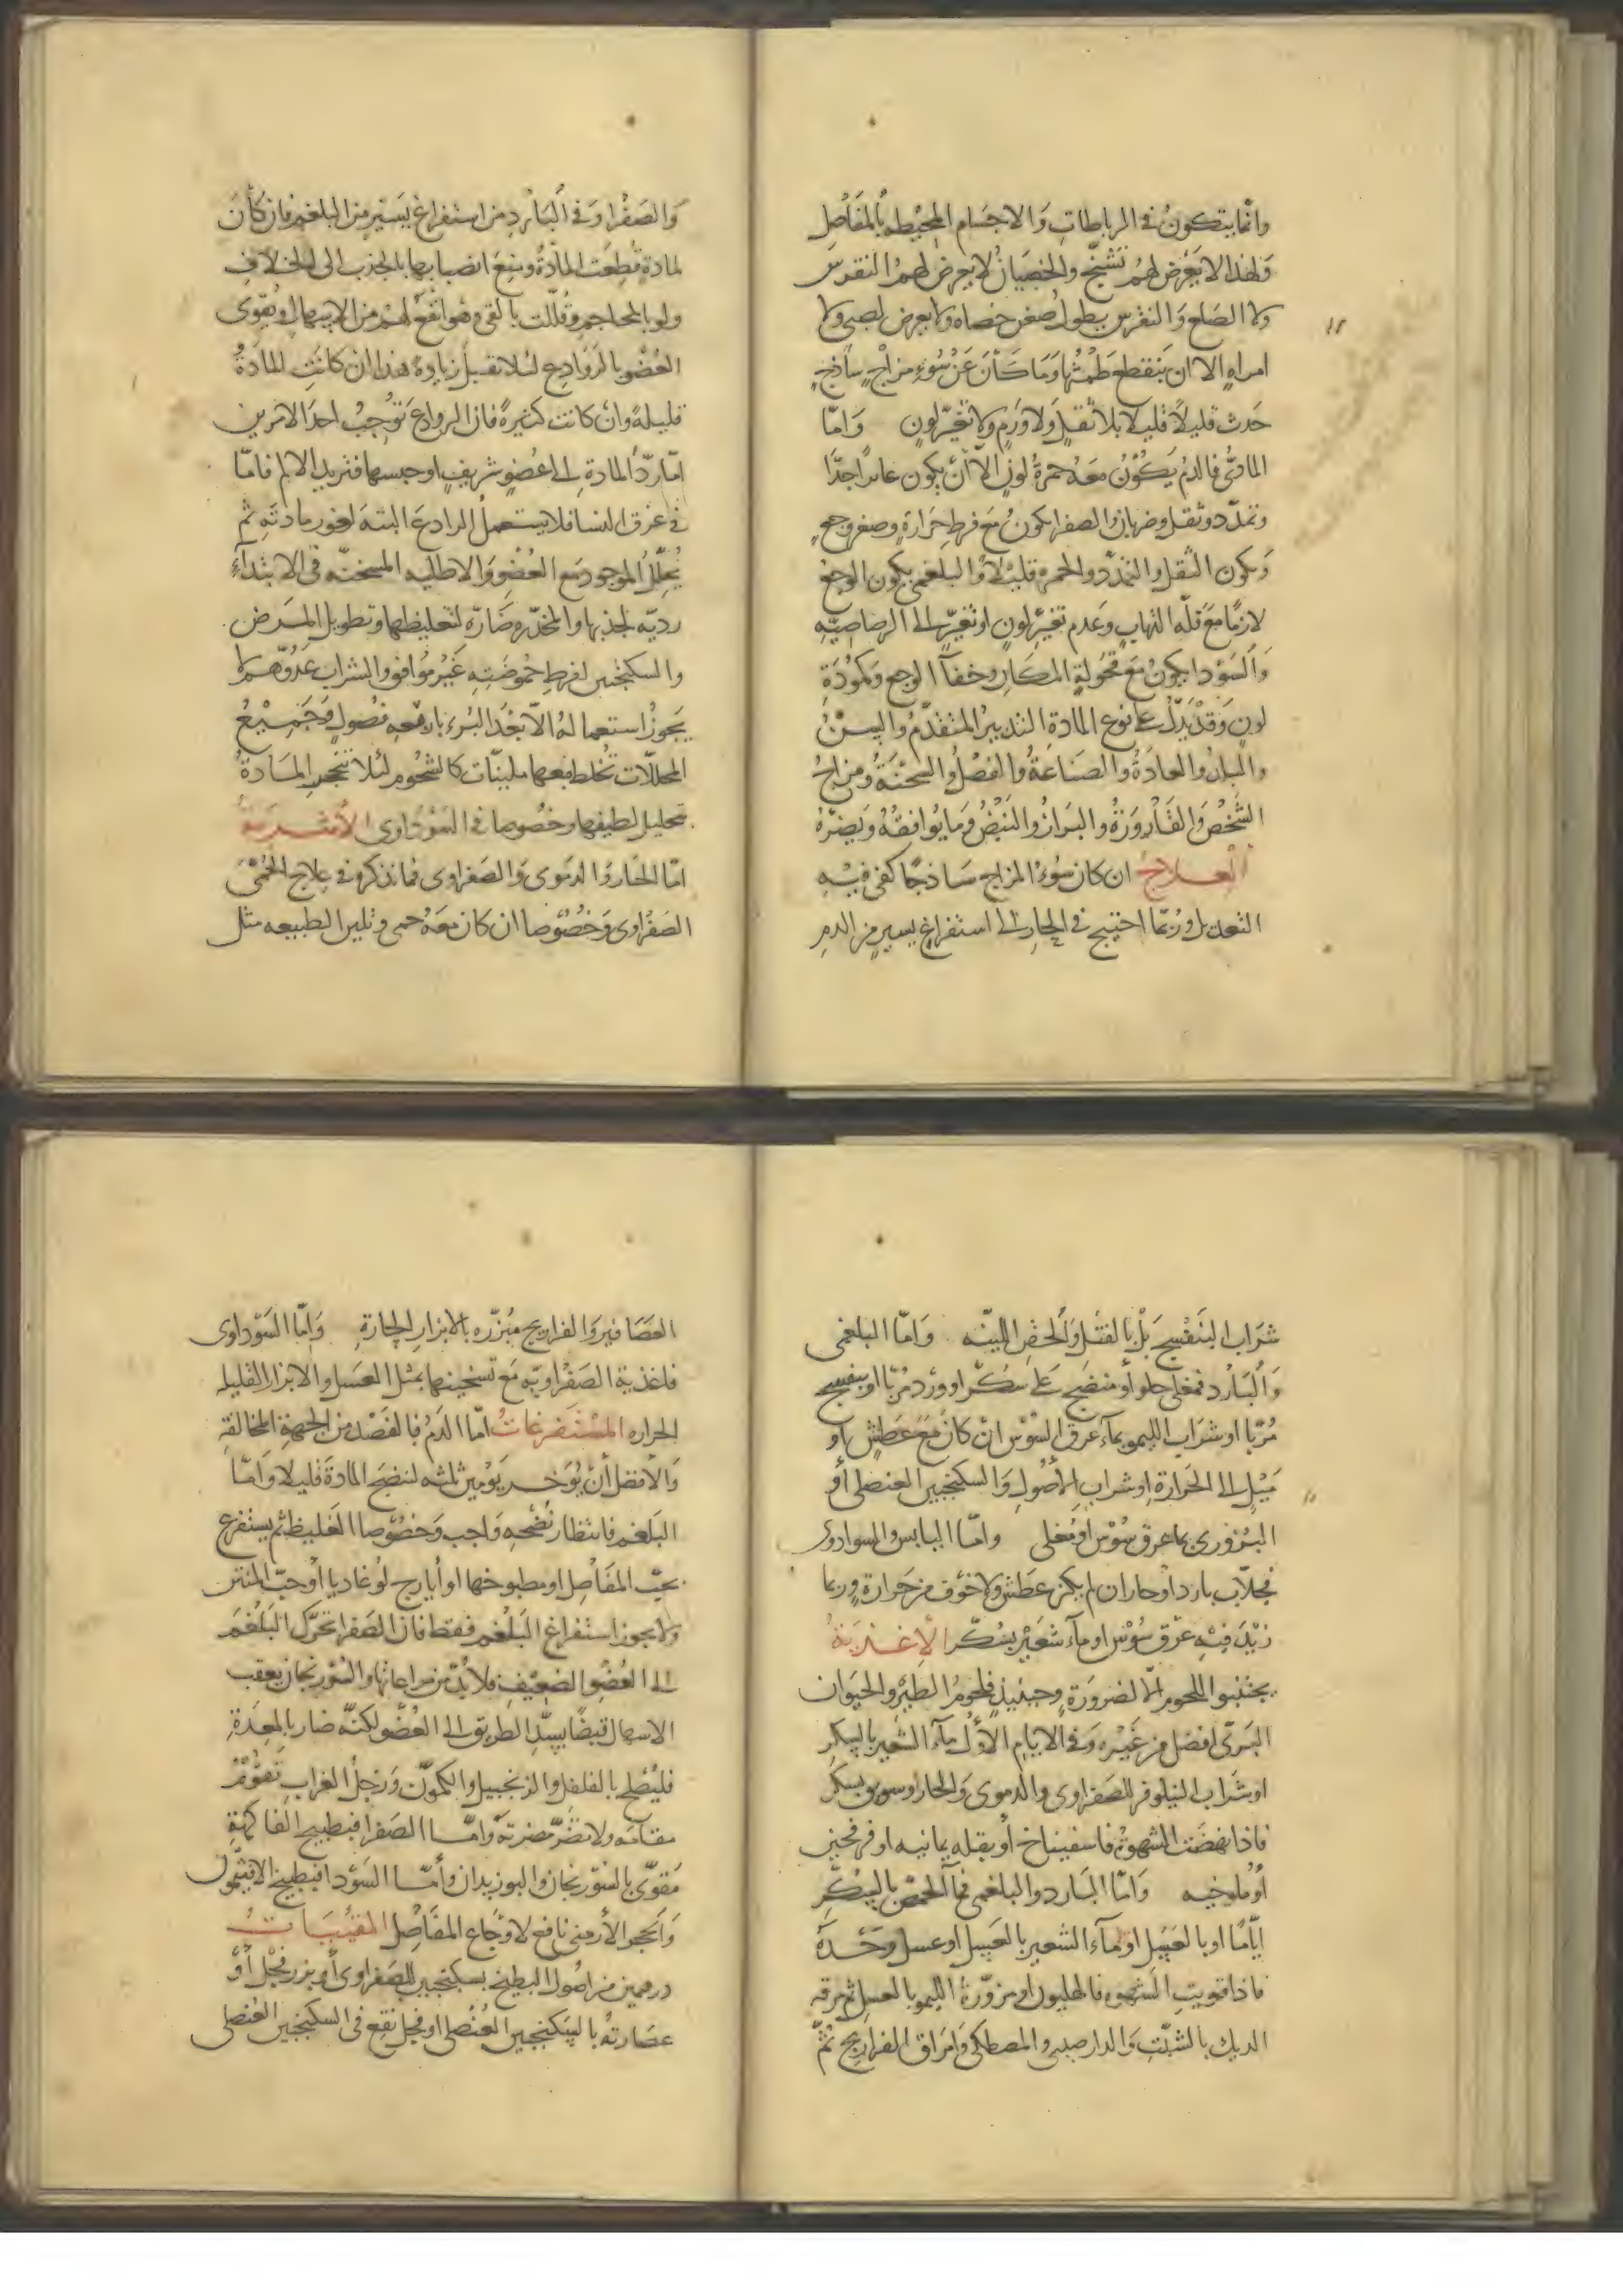 وانما يتكون في الرباطات والاجسام المحيطه بالمفاصل
ولهذا لا يعرض لهم تشنج والخصيان لا يعرض لهم النقرس
ولا الصلع والنقرس يطول صغن خصاه ولا يعرض لصبي ولا
امراه الا ان ينقطع طمثها وما كان عن سوء مزاج ساذج
حدث قليلا قليلا بلا ثقل ولا ورم ولا تغير لون واما
المادي فالدم يكون معه حمرة لون الا ان يكون غائرا جدا
وتمدد وثقل وضربان والصفرا يكون مع فرط حرارة وصغر وجع
ويكون الثقل والتمدد والحمرة قليلا والبلغمي يكون الوجع
لازما مع قلة التهاب وعدم تغير لون او تغير الى الرصاصيه
والسودا يكون مع قحولة المكان وخفا الوجع وكمودة
لون وقد يدل على نوع المادة التدبير المتقدم والسن
والبلد والعادة والصناعة والفصل والسحنة ومزاج
الشخص والقارورة والبراز والنبض وما يوافقه ويضره
العلاج ان كان سوء المزاج ساذجا كفى فيه
التعديل وربما احتيج في الحار الى استفراغ يسير من الدم
والصفرا وفي البارد من استفراغ يسير من البلغم فان كان
لمادة قطعت المادة ومنع انصبابها بالجذب الى الخلاف
ولو بالمحاجم وقللت بالقي وهو انفع لهم من الاسهال ويقوى
العضو بالروادع لئلا تقبل زيادة هذا ان كانت المادة
قليلة وان كانت كثيرة فان الروادع توجب احد الامرين
اما رد المادة الى عضو شريف او حبسها فتزيد الالم فاما
في عرق النسا فلا يستعمل الرادع البتة لغور مادته ثم
يحلل الموجود مع العضو والاطليه المسخنه في الابتداء
رديه لجذبها والمخدره ضاره لتغليظها وتطويل المرض
والسكنجبين لفرط حموضته غير موافق والشراب عدوهم لا
يجوز استعماله الا بعد البرء باربعه فصول وجميع
المحللات تخلط معها ملينات كالشحوم لئلا تتحجر المادة
بتحليل لطيفها وخصوصا في السوداوى الاشربة
اما الحار والدموى والصفراوى فما نذكره في علاج الحمى
الصفراوى وخصوصا ان كان معه حمى وتليين الطبيعه مثل
شراب البنفسج بل بالفتل والحقن اللينه واما البلغمي
والبارد فمغلى حلو او منضج على سكر او ورد مربا او بنفسج
مربا او شراب الليمو بماء عرق السوس ان كان مع عطش او
ميل الى الحرارة او شراب الاصول والسكنجبين العنصلي او
البزورى بما عرق سوس او مغلى واما اليابس والسوادوى
فجلاب بارد او حار ان لم يكن عطش ولا خوف من حرارة وربما
زيد فيه عرق سوس او ماء شعير بسكر الاغذية
يجتنبوا اللحوم الا لضرورة وحينئذ فلحوم الطير والحيوان
البري افضل من غيره وفي الايام الاول ماء الشعير بالسكر
او شراب النيلوفر للصفراوى والدموى والحار او سويق بسكر
فاذا نهضت الشهوة فاسفيناخ او بقله يمانيه او فرفحين
او ملوخيه واما البارد والبلغمي فماء الحمص بالسكر
اياما او بالعسل او ماء الشعير بالعسل او عسل وحده
فاذا قويت الشهوه فالهليون او مزورة الليمو بالعسل ثم مرقه
الديك بالشبت والدارصيني والمصطكى وامراق الفراريج ثم
العصافير والفراريج مبزره بالابزار الحارة واما السوداوى
فاغذية الصفراويه مع تسخينها بمثل العسل والابزار القليله
الحراره المستفرغات اما الدم فالفصد من الجهة المخالفة
والافضل ان يؤخر يومين ثلثه لتنضج المادة قليلا واما
البلغم فانتظار نضجه واجب وخصوصا الغليظ ثم يستفرغ
بحب المفاصل او مطبوخها او أيارج لوغاديا او حب المنتن
ولا يجوز استفراغ البلغم فقط فان الصفرا تحرك البلغم
الى العضو الضعيف فلا بد من مراعاتها والسورنجان يعقب
الاسهال قبضا يسد الطريق الى العضو لكنه ضار بالمعدة
فليصلح بالفلفل والزنجبيل والكمون ورجل الغراب تقوم
مقامه ولا تضر مضرته واما الصفرا فبطبيخ الفاكهة
مقوى بالسورنجان والبوزيدان وأما السودا فبطبيخ الافيثمون
والحجر الأرمني نافع لاوجاع المفاصل المقيئات
درهمين من اصول البطيخ بسكنجبين للصفراوى أو بزر فجل أو
عصارته بالسكنجبين العنصلى او فجل نقع في السكنجبين العنصلي